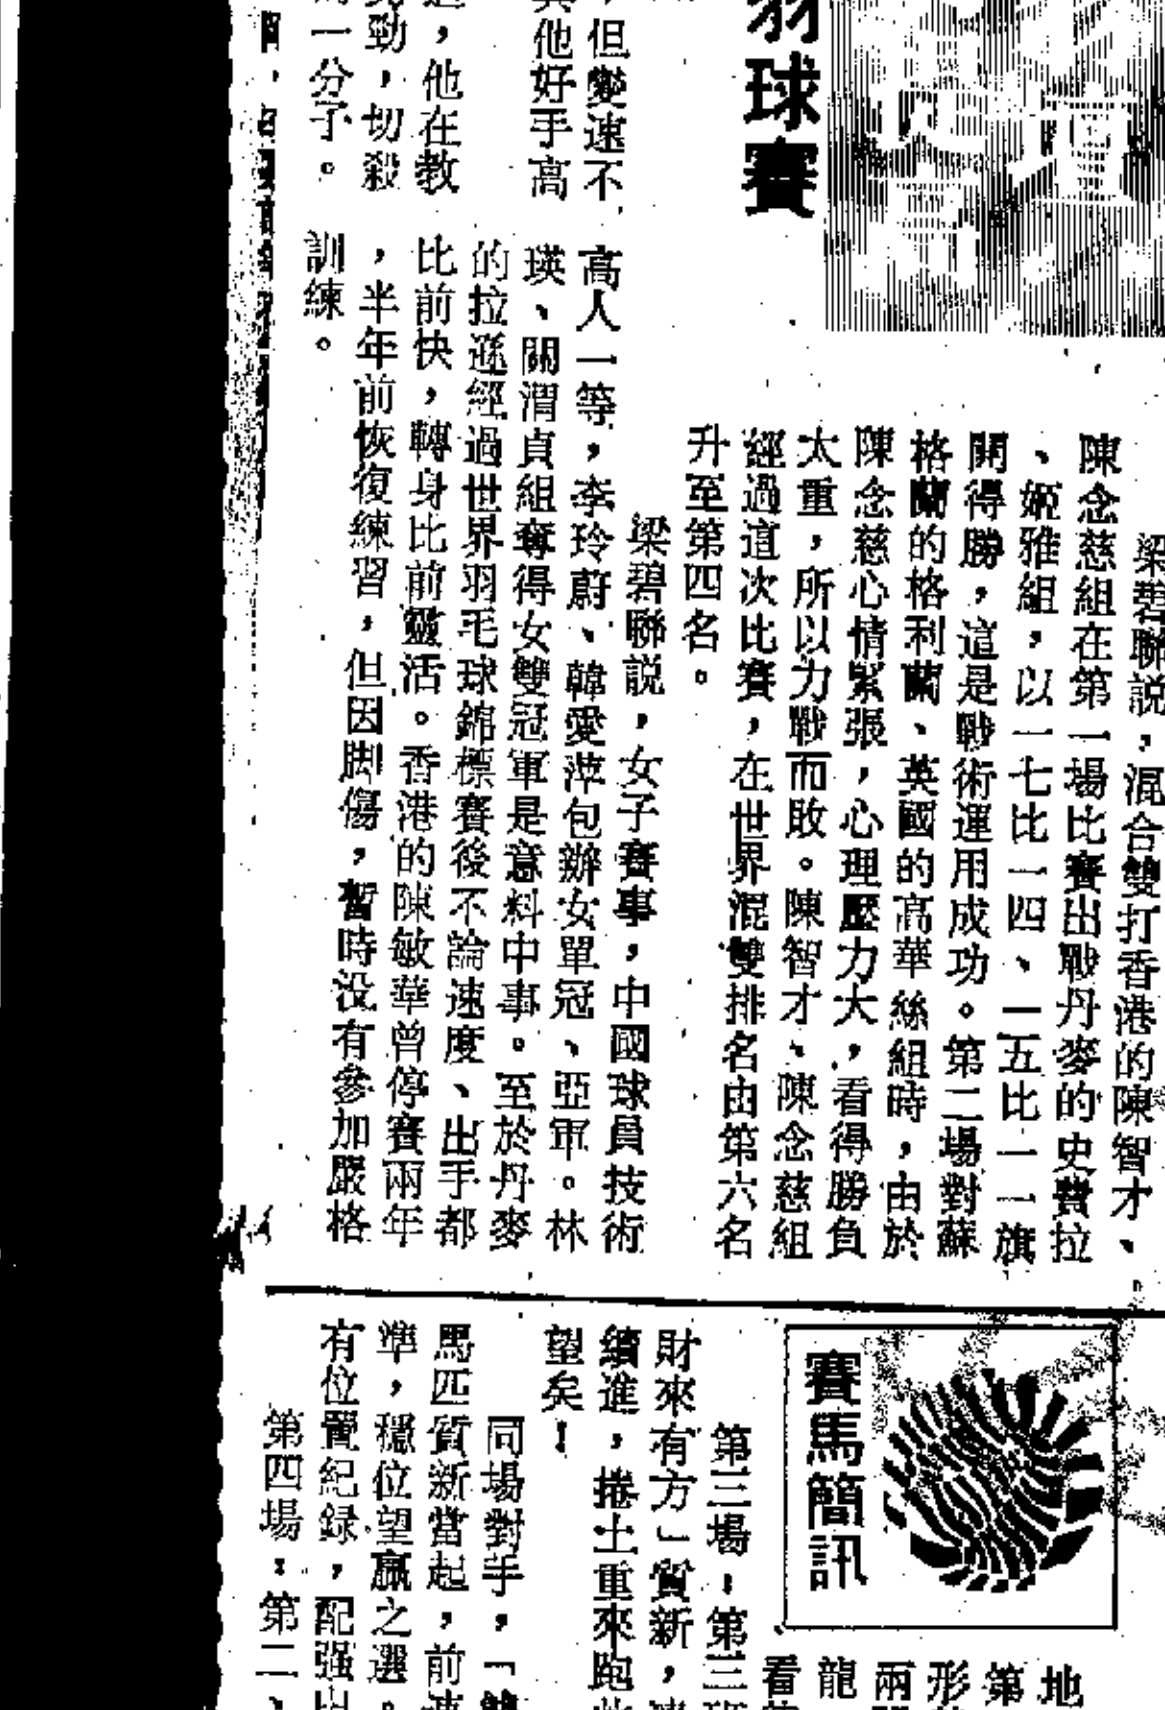 羽球賽
，但變速不
其他好手高
，他在教
勁，切殺
一分子。
梁碧聯説，混合雙打香港的陳智才、
陳念慈組在第一場比賽出戰丹麥的史費拉
、姬雅組，以一七比一四、一五比一一旗
開得勝，這是戰術運用成功。第二場對蘇
格蘭的格利蘭、英國的高華絲組時，由於
陳念慈心情緊張，心理壓力大，看得勝負
太重，所以力戰而敗。陳智才、陳念慈組
經過這次比賽，在世界混雙排名由第六名
升至第四名。
梁碧聯説，女子賽事，中國球員技術
高人一等，李玲蔚、韓愛萍包辦女單冠、亞軍。林
瑛、關渭貞組奪得女雙冠軍是意料中事。至於丹麥
的拉遜經過世界羽毛球錦標賽後不論速度、出手都
比前快，轉身比前靈活。香港的陳敏華曾停賽兩年
，半年前恢復練習，但因脚傷，暫時没有參加嚴格
訓練。
賽馬簡訊
地
第
形
兩
龍
看
第三場，第三
財來有方」質新，
續進，捲土重來跑
望矣！
同場對手，「
馬匹質新當起，前
準，穩位望贏之選
有位置紀録，配强
第四場：第二、